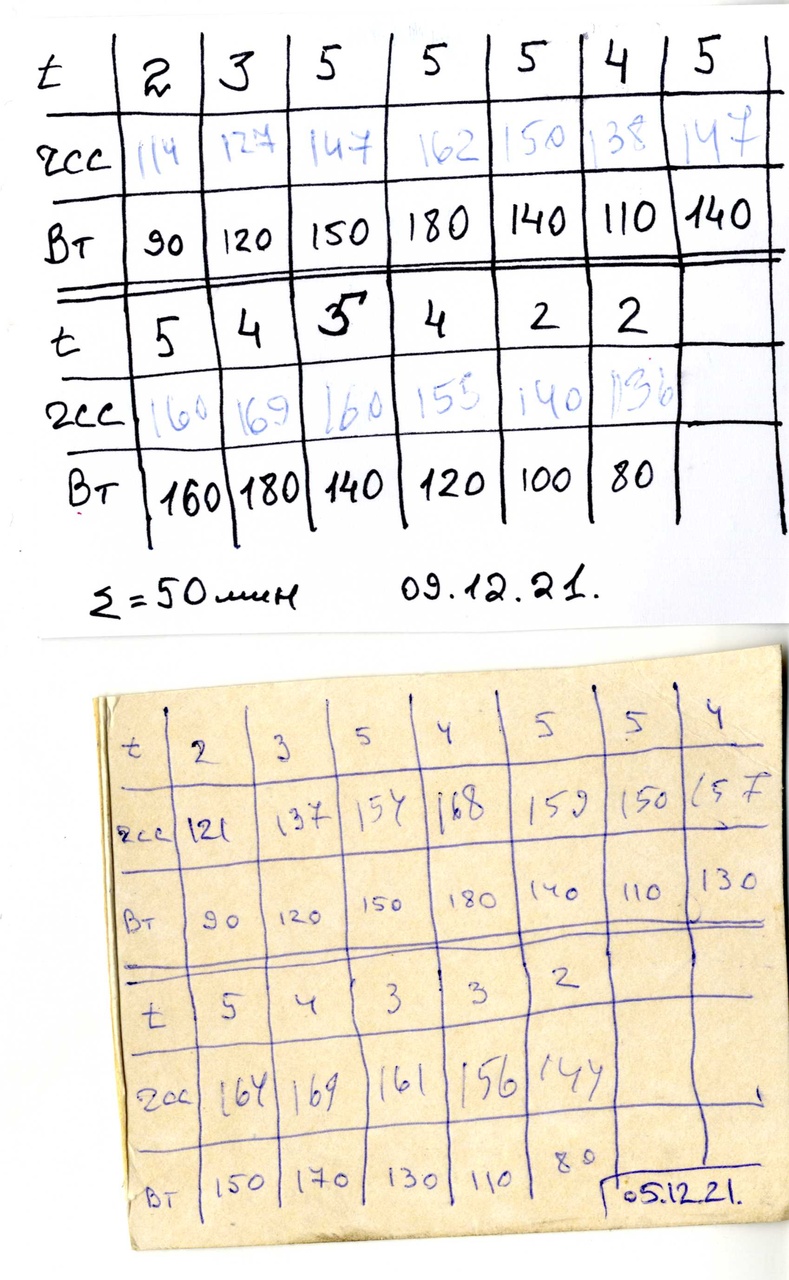 t 2 3 5 5 5 4 5
ЧСС 114 127 147 162 150 138 147
Вт 90 120 150 180 140 110 140
t 5 4 5 4 2 2
ЧСС 160 169 160 155 140 136
Вт 160 180 140 120 100 80
Σ = 50 мин 09.12.21.
t 2 3 5 4 5 5 4
ЧСС 121 137 154 168 159 150 157
Вт 90 120 150 180 140 110 130
t 5 4 3 3 2
ЧСС 164 169 161 156 144
Вт 150 170 130 110 80
05.12.21.